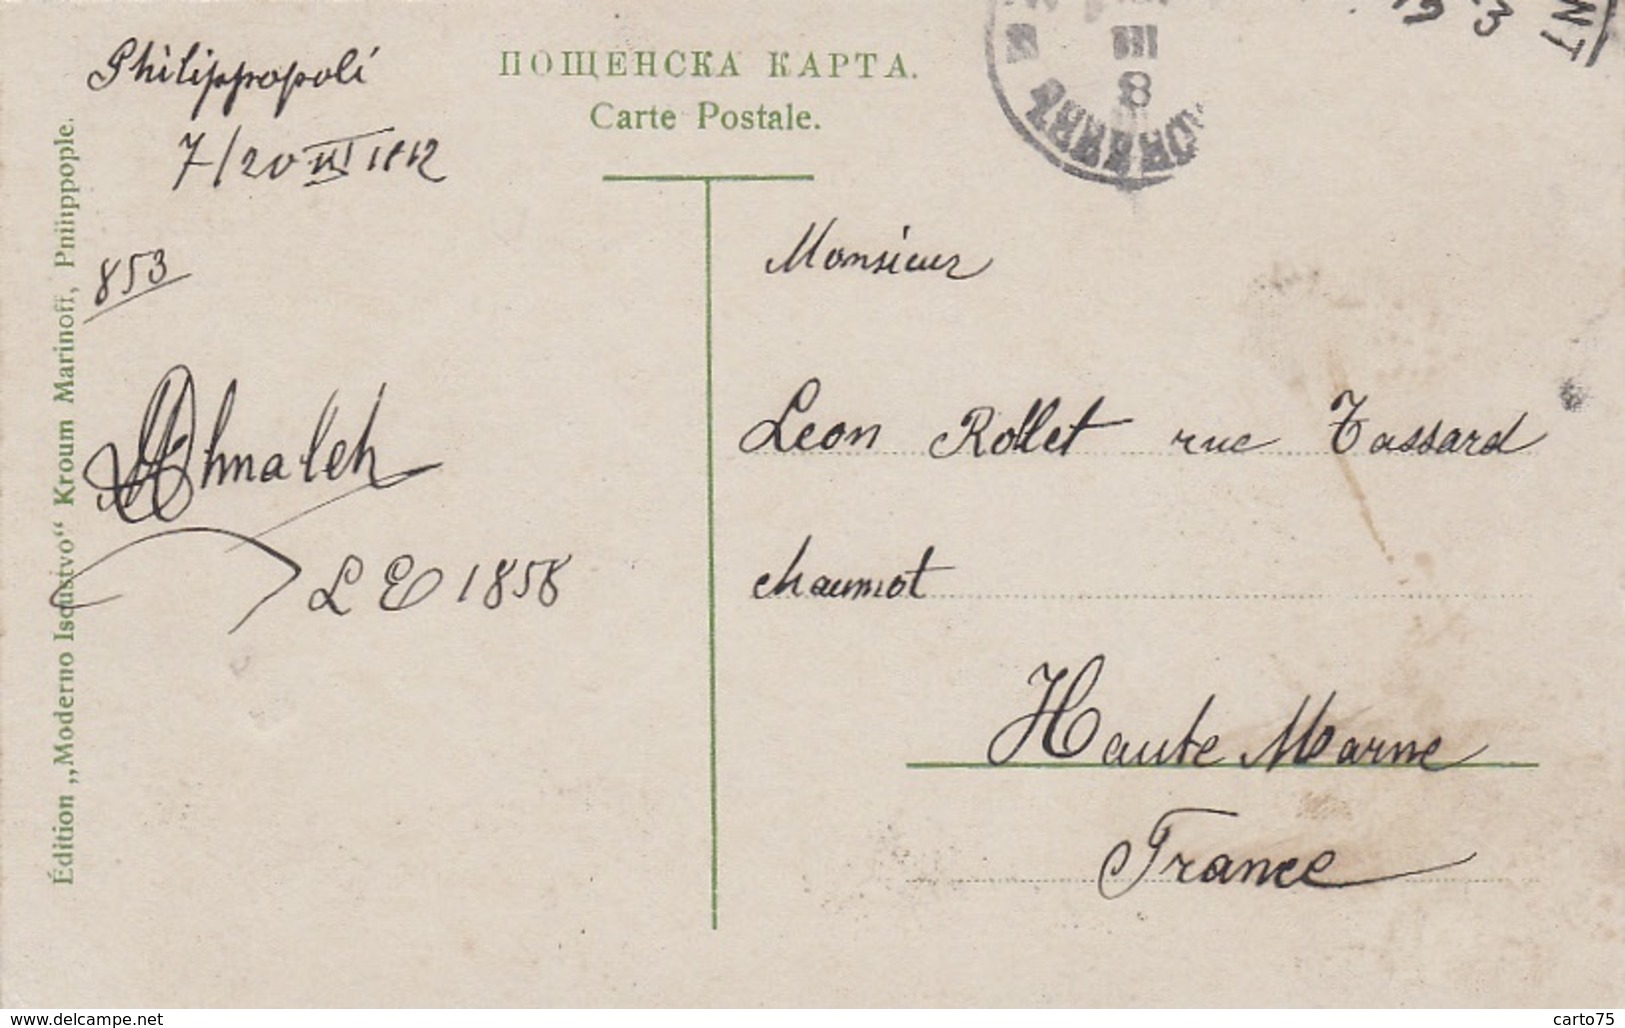 Philippopoli
7/20 III 1912
ПОЩЕНСКА КАРТА.
Carte Postale.
8
853
LE 1858
Édition „Moderno Iscustvo“ Kroum Marinoff, Philippople.
Monsieur
Leon Rollet rue Tassard
chaumot
Haute Marne
France
www.delcampe.net
carto75